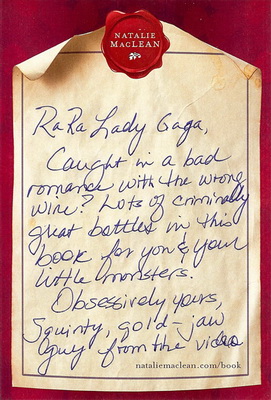 NATALIE
MACLEAN
RaRa Lady Gaga,
Caught in a bad
romance with the wrong
wine? Lots of criminally
great bottles in this
book for you & your
little monsters.
Obsessively yours,
Squinty, gold-jaw
guy from the video
nataliemaclean.com/book